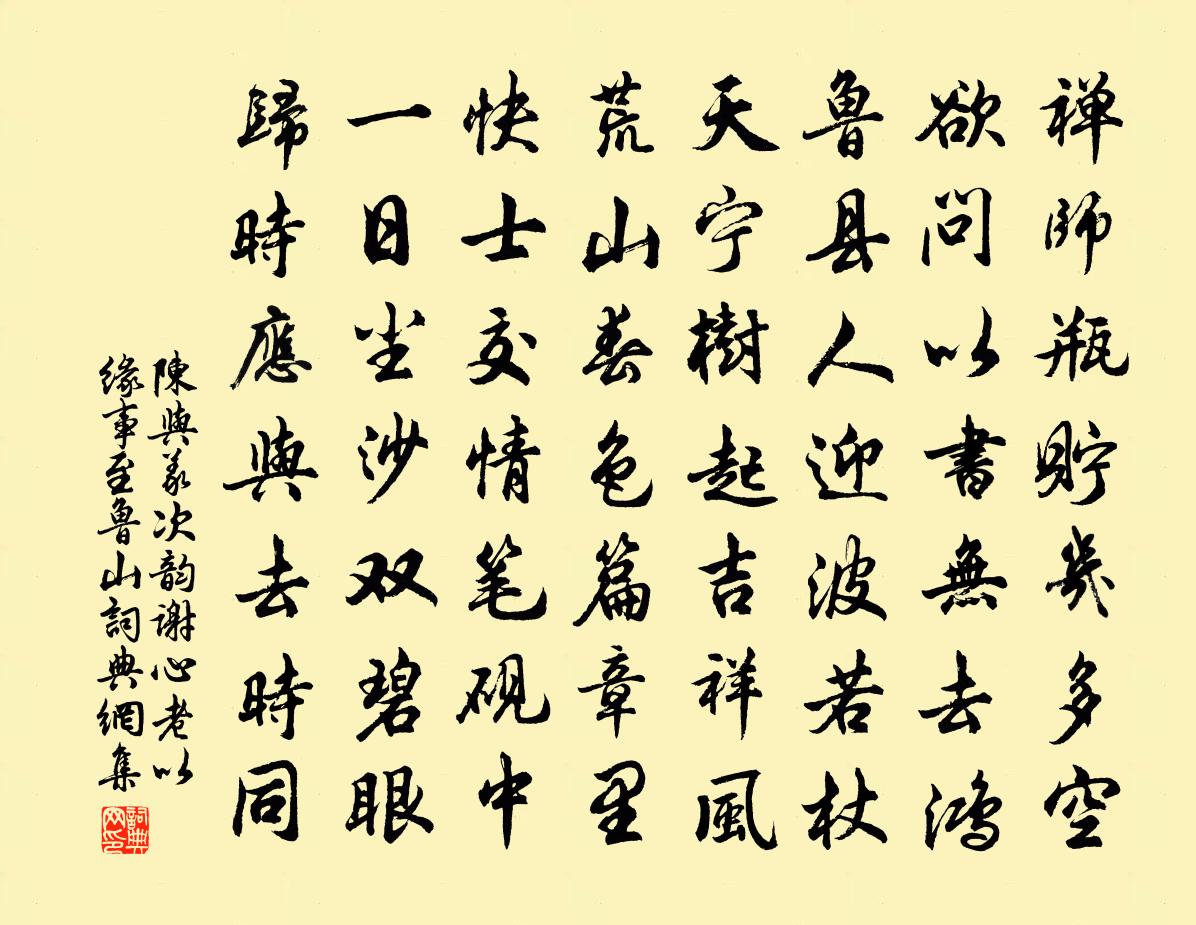 禅師瓶貯幾多空
欲问以書無去鴻
魯县人迎波若杖
天宁樹起吉祥風
荒山春色篇章里
快士交情笔硯中
一日尘沙双碧眼
歸時應與去時同
陳與义次韵謝心老以
缘事至魯山詞典網集
詞典
网印